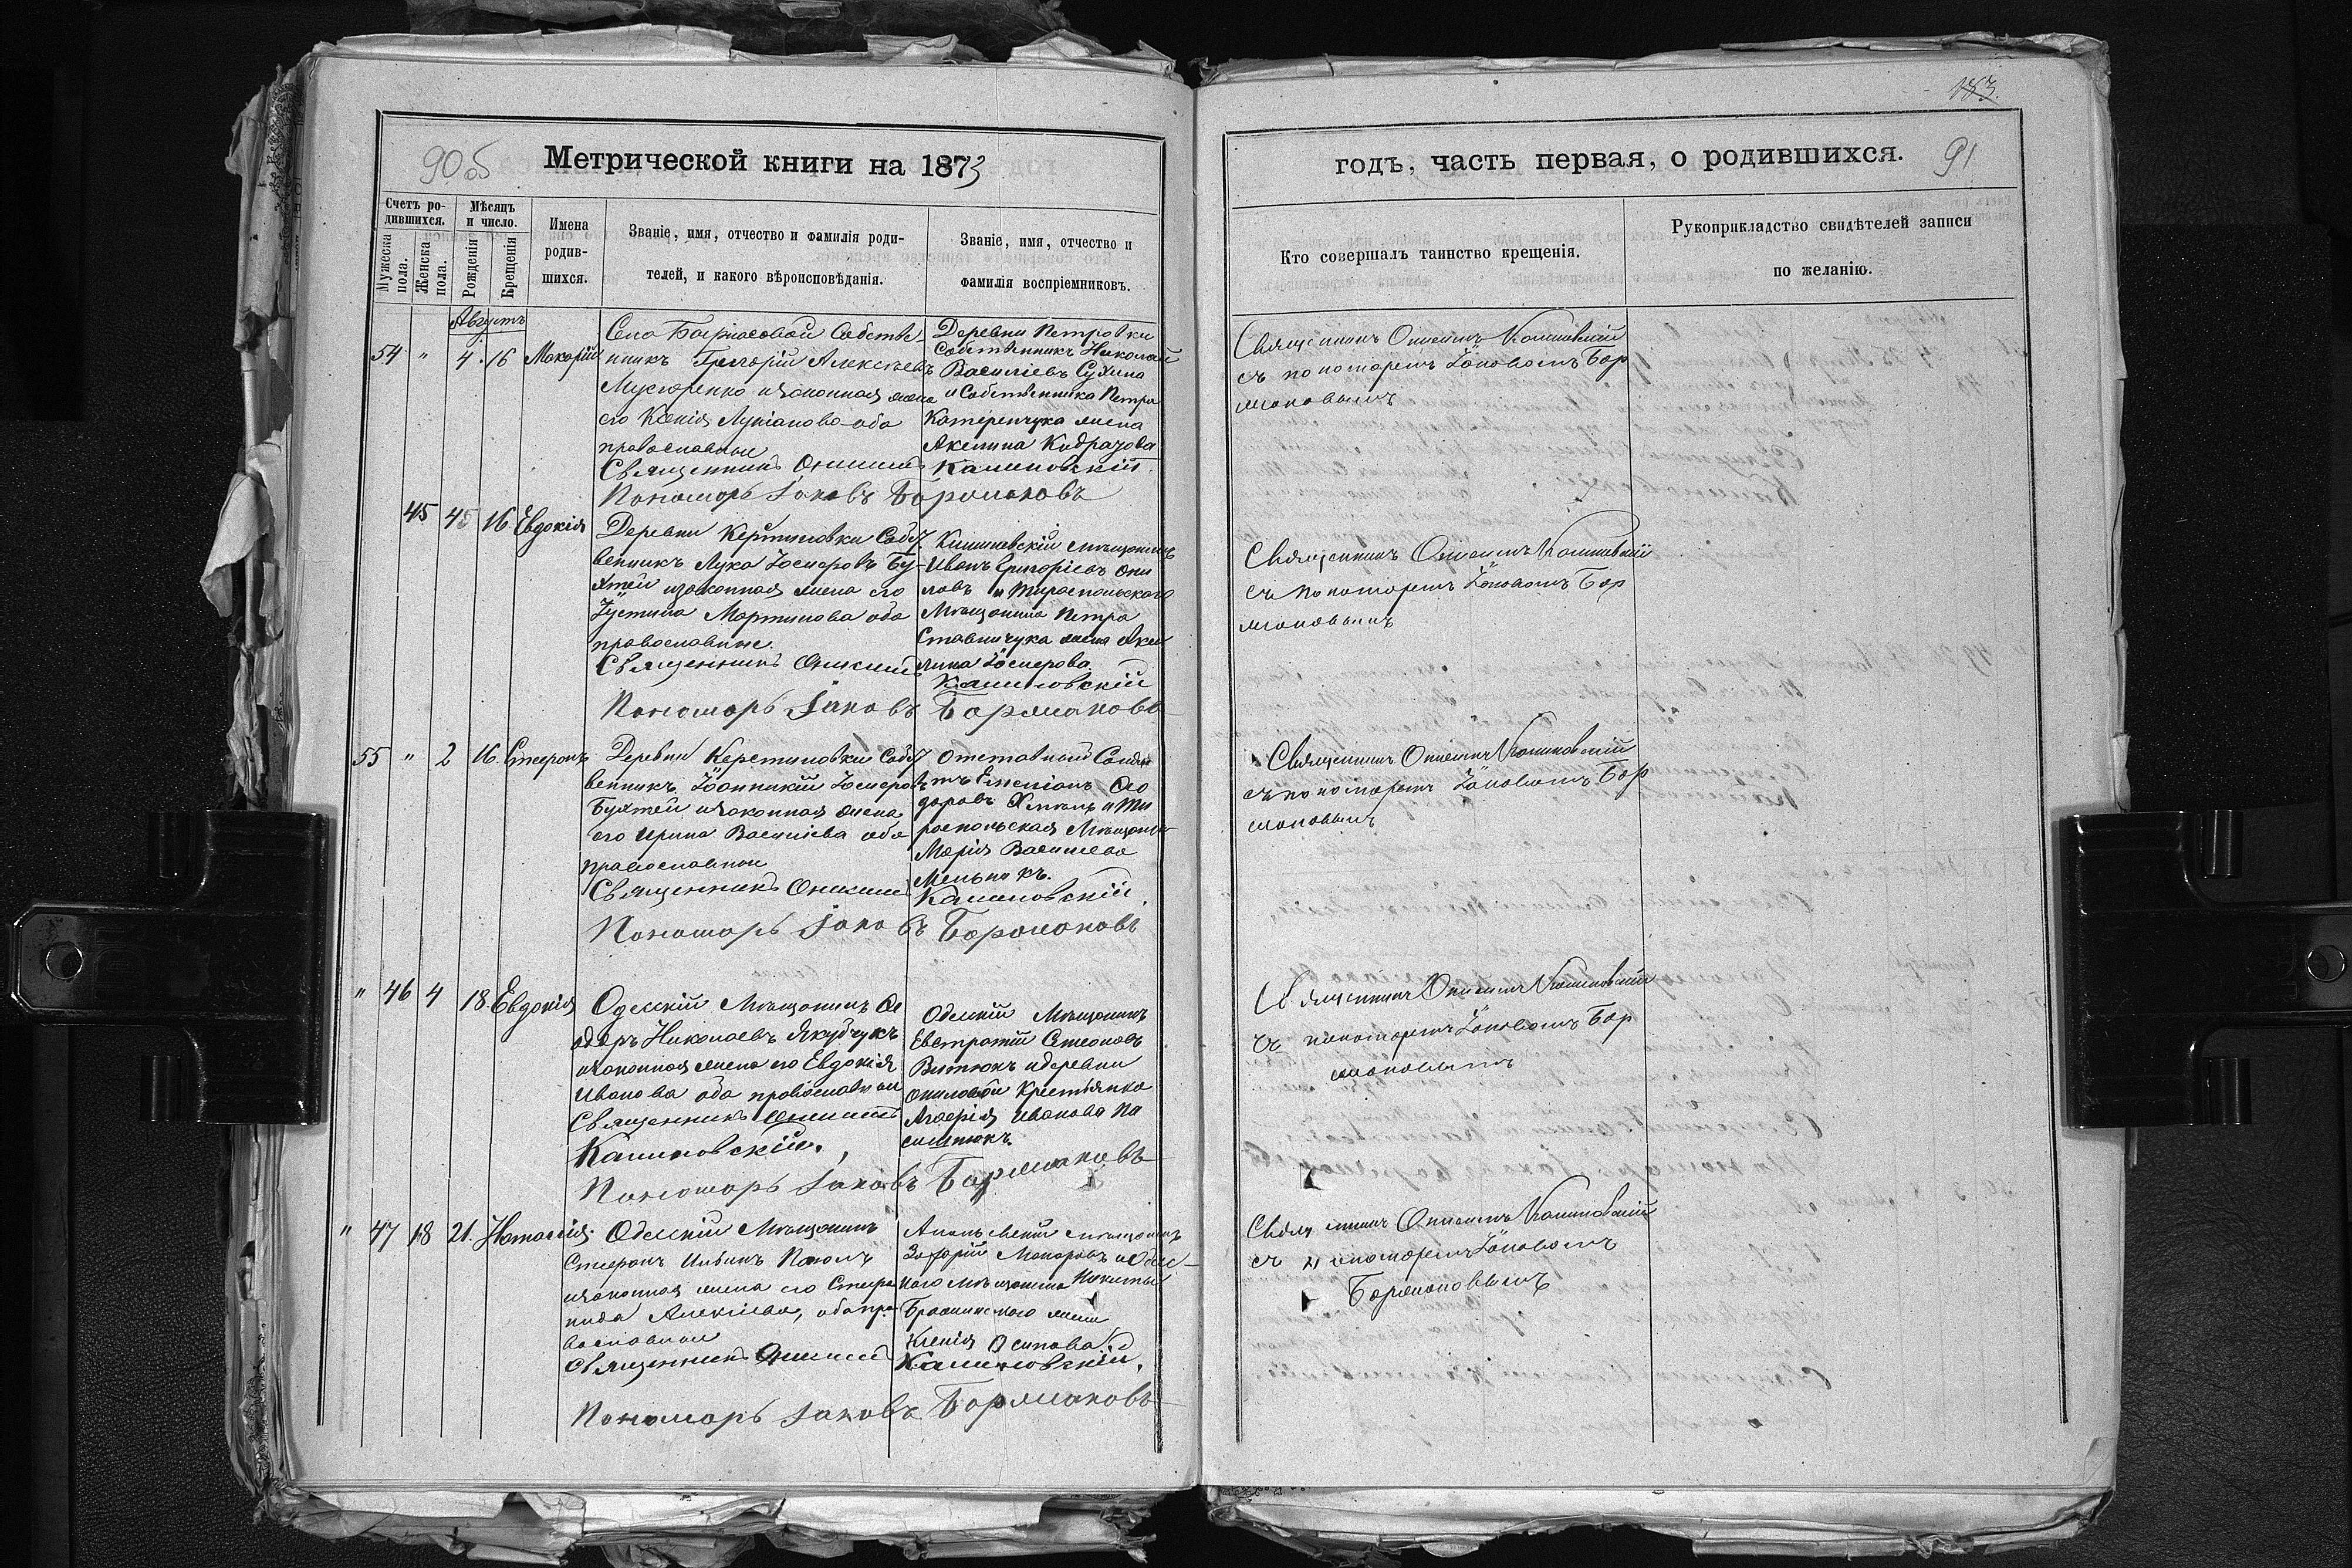 90об
Метрической книги на 1873
Счетъ ро-
дившихся.
Мужеска
пола.
Женска
пола.
Мѣсяцъ
и число.
Рожденія
Крещенія
Имена
родив-
шихся.
Званіе, имя, отчество и фамилія роди-
телей, и какого вѣроисповѣданія.
Званіе, имя, отчество и
фамилія воспріемниковъ.
Августъ
54 " 4 16 Макарій
Собстве-
нникъ Григорій Алексѣевъ
законная жена
его Ксенія Лукіанова оба
православные
Священникъ Онисимъ Калиновскій.
Пономарь Іаковъ Бормаковъ
Деревни Петровки
Собственникъ Николай
Василіевъ Сухина
и Собственника Петра
Катеренчука жена
Акелина
45 16 Евдокія
Деревни Собст
венникъ Лука Іосифовъ Бу-
ятей и законная жена его
Іустина Мартинова оба
православные.
Священникъ Онисимъ
Калиновскій
Пономарь Іаковъ Бормаковъ
Кишиневскій мѣщанинъ
Иванъ Григоріевъ Они
ловъ и Тираспольского
Мѣщанина Петра
Ставничука жена Аке
лина Іосифова.
55 " 2 16. Стефанъ
Деревни Собст
венникъ Іоанникій Іосифовъ
Буятей и законная жена
его Ирина Василіева оба
православные
Священникъ Онисимъ
Калиновскій.
Пономарь Іаковъ Бормаковъ
Отставной Солда
тъ
и Ти
распольская Мѣщанка
Марія Василіева
Мельникъ.
" 46 4 18. Евдокія
Одесскій Мѣщанинъ Ѳе
одоръ Николаевъ Якубчукъ
и законная жена его Евдокія
Иванова оба православные
Священникъ Онисимъ
Калиновскій.
Пономарь Іаковъ Бормаковъ
Одесскій Мѣщанинъ
Евстратій Симеоновъ
и деревни
Ониловой Крестьянка
Агафія Иванова
" 47 18 21. Наталія
Одесскій Мѣщанинъ
Стефанъ
и законная жена его Стефа
нида Алексіева, оба пра-
вославные
Священникъ Онисимъ Калиновскій.
Пономарь Іаковъ Бормаковъ
Ананьевскій мѣщанинъ
Захарій Макаровъ и Одес-
кого мѣщанина Никиты
жена
Ксенія Осипова
183.
годъ, часть первая, о родившихся.
91
Кто совершалъ таинство крещенія.
Рукоприкладство свидѣтелей записи
по желанію.
Священникъ Онисимъ Калиновскій
съ пономаремъ Іаковомъ Бор
маковымъ
Священникъ Онисимъ Калиновскій
съ пономаремъ Іаковомъ Бор
маковымъ
Священникъ Онисимъ Калиновскій
съ пономаремъ Іаковомъ Бор
маковымъ
Священникъ Онисимъ Калиновскій
съ пономаремъ Іаковомъ Бор
маковымъ
Священникъ Онисимъ Калиновскій
съ пономаремъ Іаковомъ
Бормаковымъ